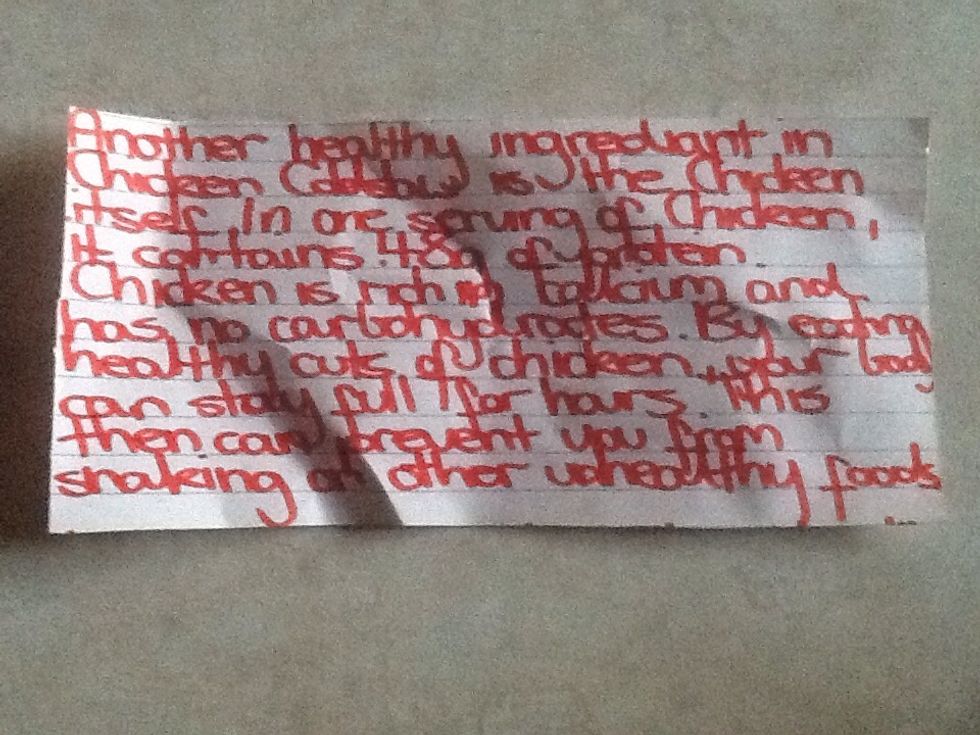 Another healthy ingrediant in
Chicken is the Chicken
itself. In one serving of Chicken,
it contains 48g of protein.
Chicken is rich in calcium and
has no carbohydrates. By eating
healthy cuts of chicken, your body
can stay full for hours. This
then can prevent you from
snaking at other unhealthy foods